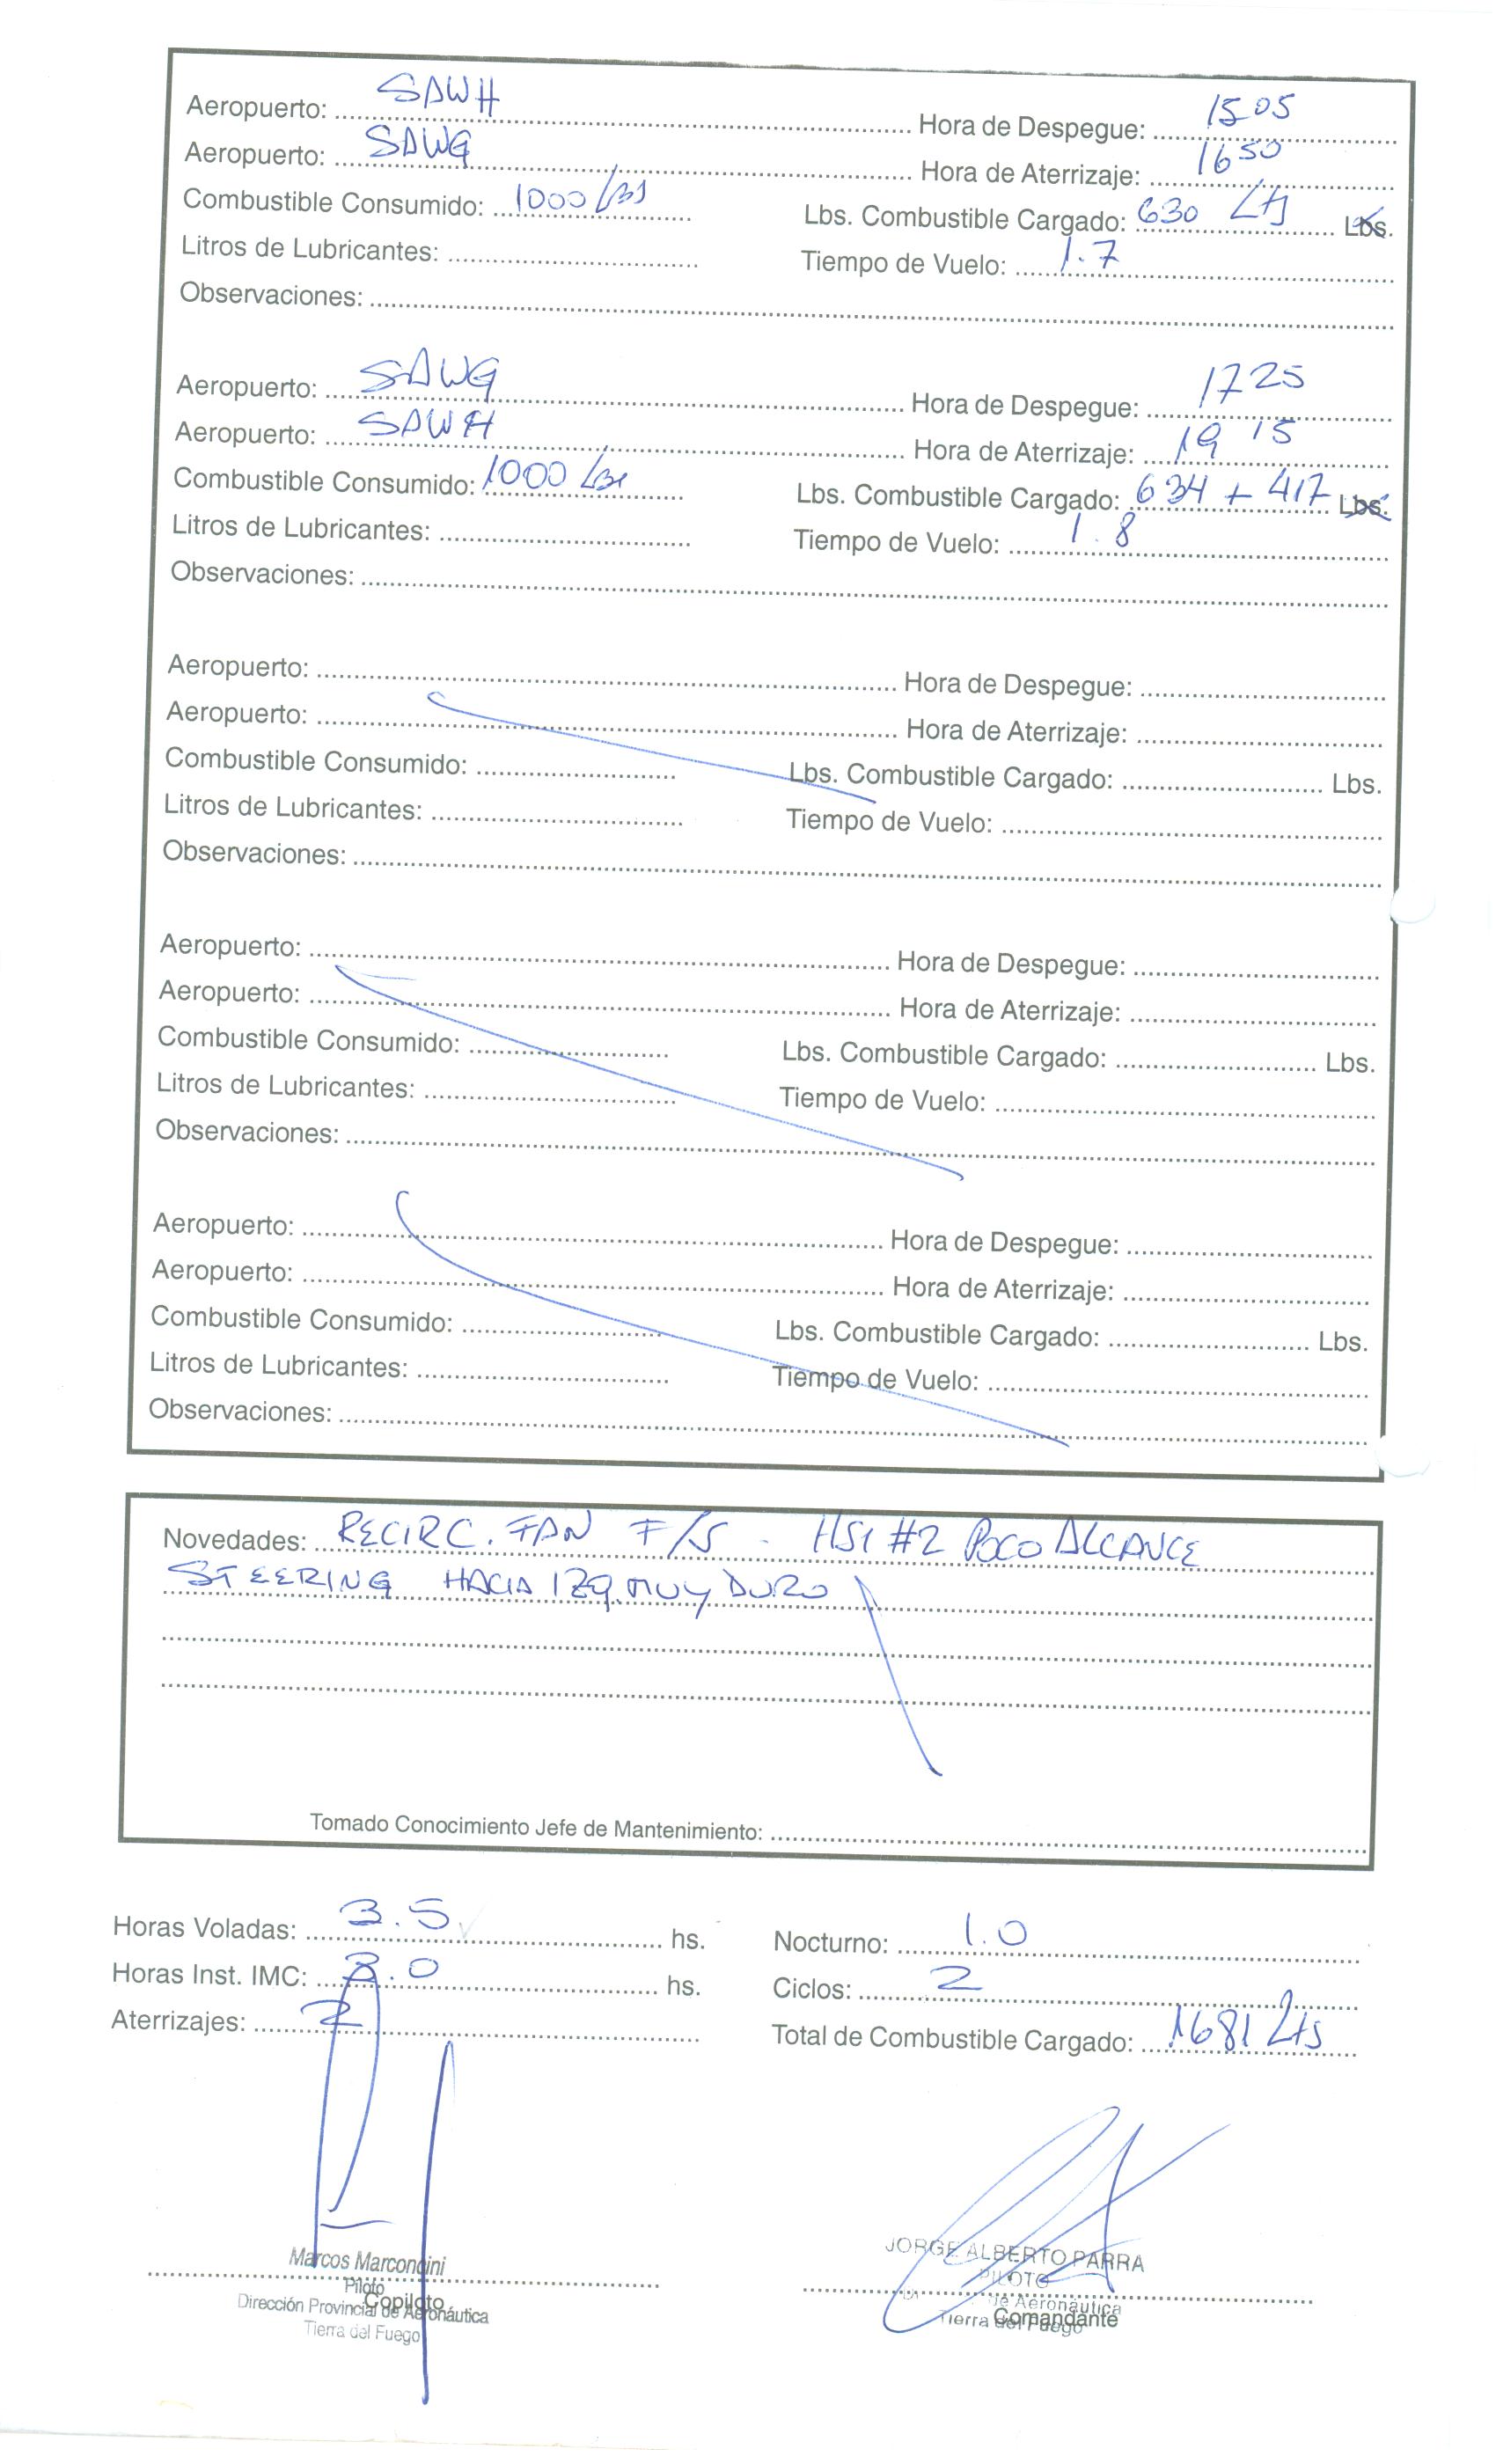 Aeropuerto: SAWH Hora de Despegue: 1505
Aeropuerto: SAWG Hora de Aterrizaje: 1650
Combustible Consumido: 1000 Lbs Lbs. Combustible Cargado: 630 Lts Lbs.
Litros de Lubricantes: Tiempo de Vuelo: 1.7
Observaciones:
Aeropuerto: SAWG Hora de Despegue: 1725
Aeropuerto: SAWH Hora de Aterrizaje: 1915
Combustible Consumido: 1000 Lbs Lbs. Combustible Cargado: 634 + 417 Lbs.
Litros de Lubricantes: Tiempo de Vuelo: 1.8
Observaciones:
Aeropuerto: Hora de Despegue:
Aeropuerto: Hora de Aterrizaje:
Combustible Consumido: Lbs. Combustible Cargado: Lbs.
Litros de Lubricantes: Tiempo de Vuelo:
Observaciones:
Aeropuerto: Hora de Despegue:
Aeropuerto: Hora de Aterrizaje:
Combustible Consumido: Lbs. Combustible Cargado: Lbs.
Litros de Lubricantes: Tiempo de Vuelo:
Observaciones:
Aeropuerto: Hora de Despegue:
Aeropuerto: Hora de Aterrizaje:
Combustible Consumido: Lbs. Combustible Cargado: Lbs.
Litros de Lubricantes: Tiempo de Vuelo:
Observaciones:
Novedades: RECIRC. FAN F/S - HSI #2 POCO ALCANCE
STEERING HACIA IZQ. MUY DURO
Tomado Conocimiento Jefe de Mantenimiento:
Horas Voladas: 3.5 hs. Nocturno: 1.0
Horas Inst. IMC: 3.0 hs. Ciclos: 2
Aterrizajes: 2 Total de Combustible Cargado: 1681 Lts
Marcos Marconcini JORGE ALBERTO PARRA
Piloto PILOTO
Copiloto Comandante
Dirección Provincial de Aeronáutica de Aeronáutica
Tierra del Fuego Tierra del Fuego